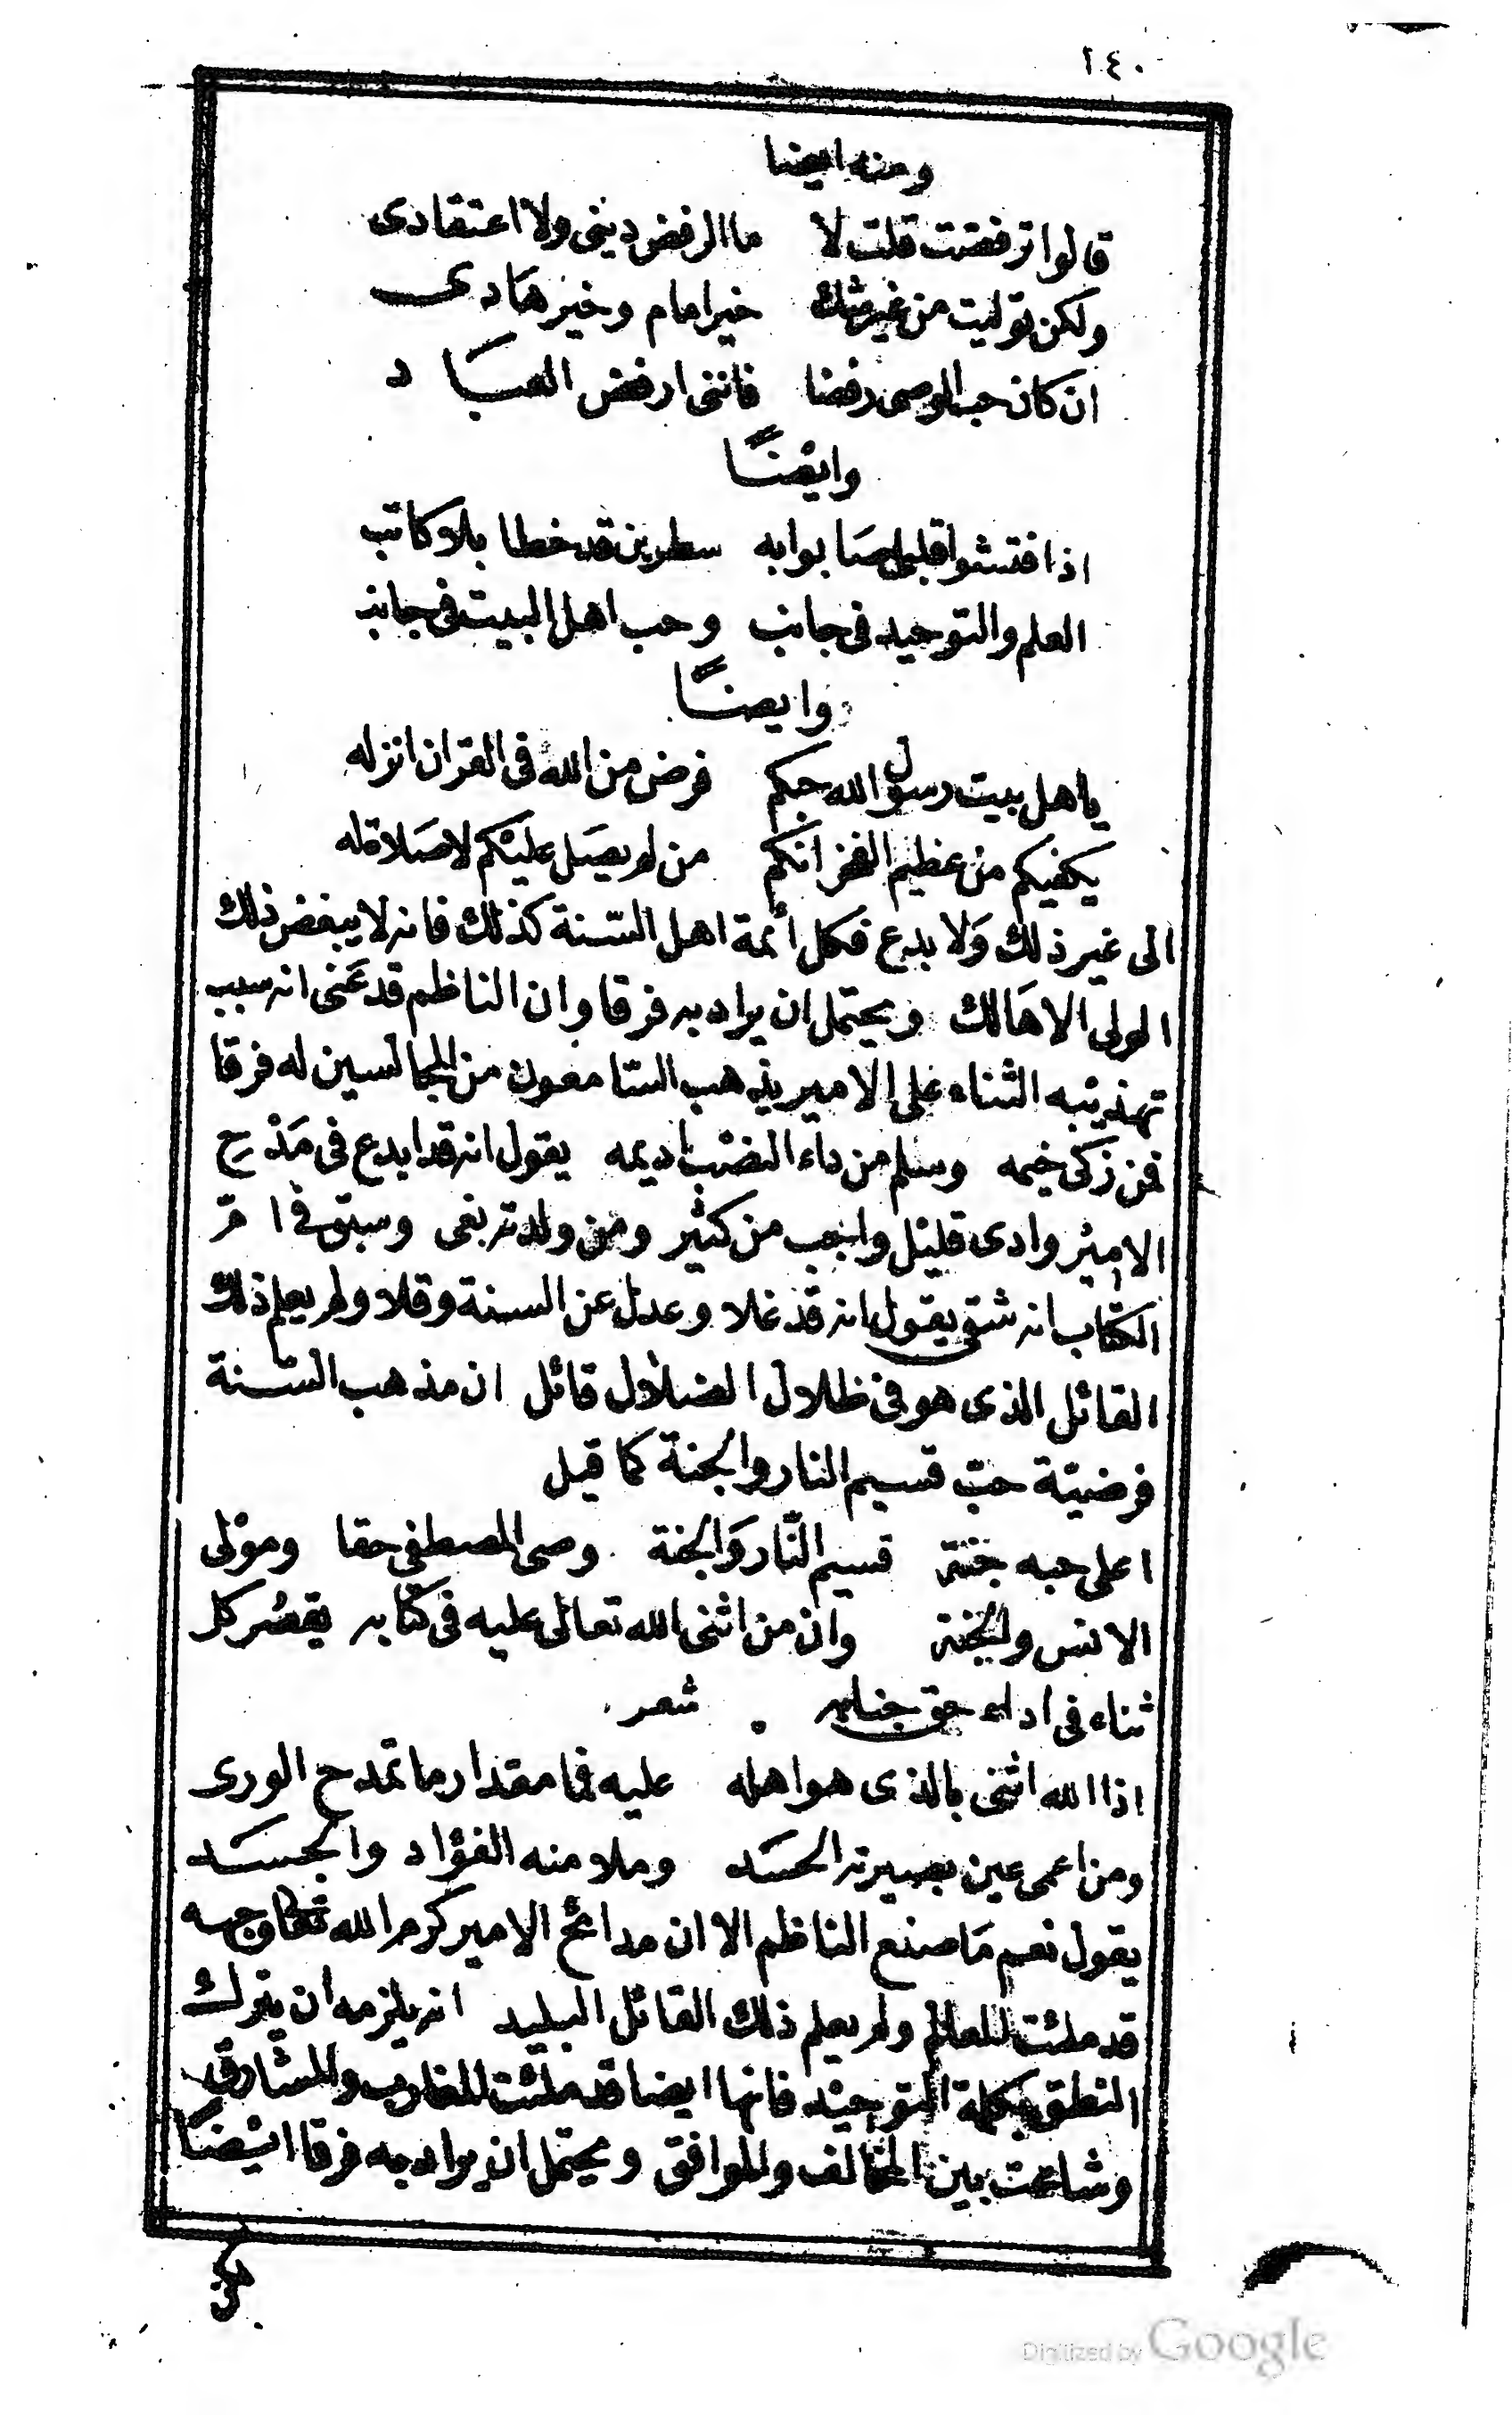 ١٤٠
ومنه ايضا
قالوا ترفضت قلت لا ما الرفض دينى ولا اعتقادى
ولكن توليت من غير شك خير امام وخير هَادى
ان كان حب الوصى رفضا فاننى ارفض العبَاد
وايْضًا
اذا فتشوا قلبى اصَابوا به سطرين قد خطا بلا كاتب
العلم والتوحيد فى جانب وحب اهل البيت فى جانب
وايضًا
ياهل بيت رسول الله حبكم فرض من الله فى القران انزله
يكفيكم من عظيم الفخر انكم من لم يصَل عليْكم لا صَلاة له
الى غير ذلك وَلا بدع فكل أئمة اهل السّنة كذلك فانه لا يبغض ذلك
المولى الا هَالك ويحتمل ان يراد به فرقا وان الناظم قد عَنى انه سبب
تهذيبه الثناء على الامير يذهب السّامعون من المجالسين له فرقا
فمن زكى خيمه وسلم من داء النصْب اديمه يقول انه قد ابدع فى مَدْح
الاميْر وادى قليْل واجب من كثيْر ومن ولدته بغى وسبق فى اُمّ
الكتاب انه شقى يقول انه قد غلا وعدل عن السنة وقلا ولم يعلم ذلك
القائل الذى هو فى ظلال الضلال قائل ان مذهب السّنة
فرضيّة حبّ قسيم النار والجنة كما قيل
اعلى حبه جنة قسيم النّار وَالجنة وصى المصطفى حقا وموْلى
الانس والجنة وان من اثنى الله تعالى عليه فى كتابه يقصُر كل
ثناء فى اداء حق جنابه شعر
اذا الله اثنى بالذى هو اهله عليه فما مقدار ما تمدح الورى
ومن اعمى عين بصيرته الحسَد وملا منه الفؤاد والجسَد
يقول نعم مَا صنع الناظم الا ان مدائح الامير كرم الله تعالى وجهه
قد ملئت العالم ولم يعلم ذلك القائل البليد انه يلزمه ان يترك
النطق بكلمة التوحيْد فانها ايضا قد ملئت المغارب والمشارق
وشاعت بين المخالف والموافق ويحتمل ان يراد به فرقا ايْضًا
Digitized by Google